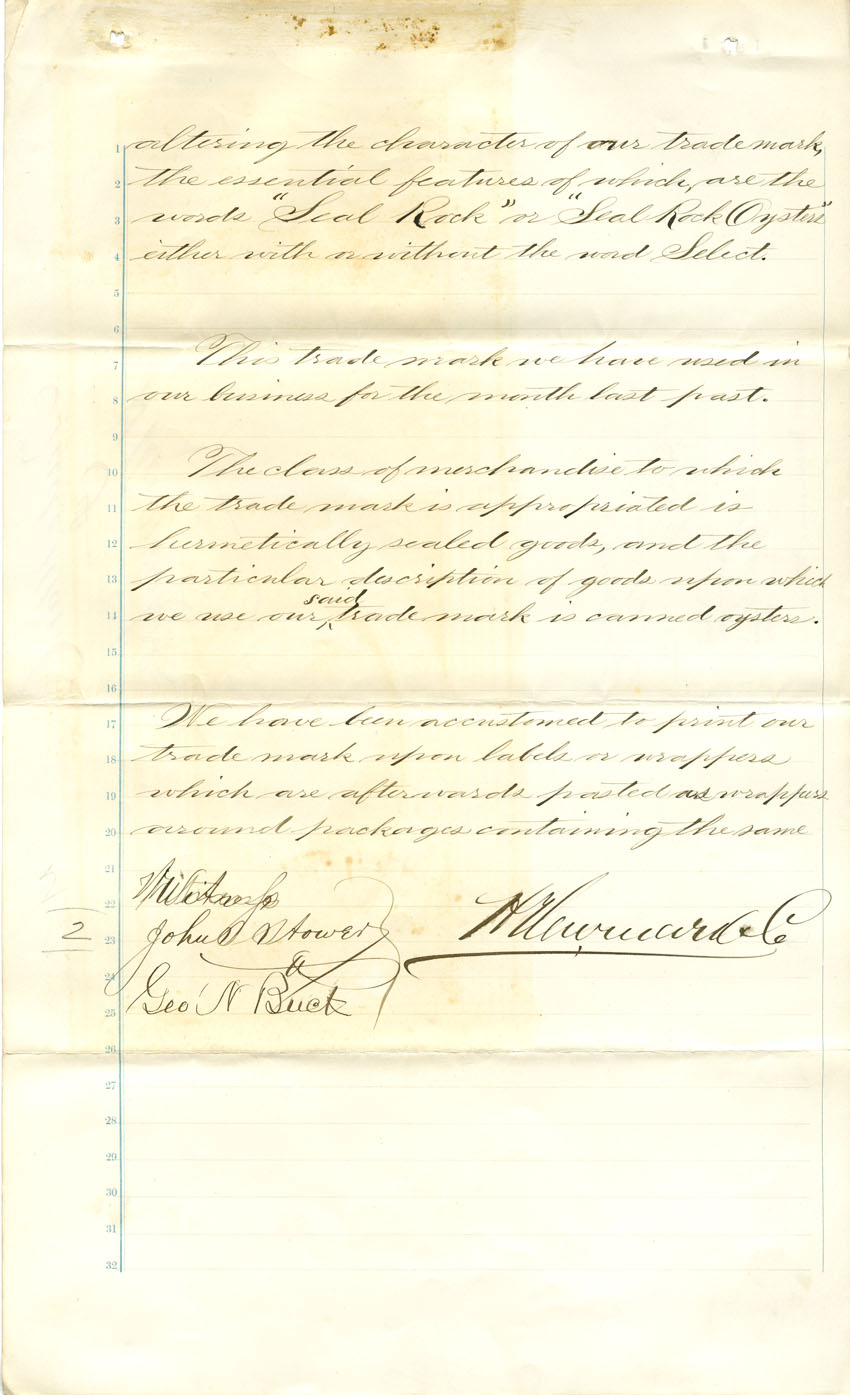 1 altering the character of our trade mark,
2 the essential features of which, are the
3 words "Seal Rock" or "Seal Rock Oysters"
4 either with or without the word Select.
5
6
7 This trade mark we have used in
8 our business for the month last past.
9
10 The class of merchandise to which
11 the trade mark is appropriated is
12 hermetically sealed goods, and the
13 particular description of goods upon which
said
14 we use our ‸ trade mark is canned oysters.
15
16
17 We have been accustomed to print our
18 trade mark upon labels or wrappers
19 which are afterwards pasted as wrappers
20 around packages containing the same
21
22
2
23 John
24
25 Geo N Buck
26
27
28
29
30
31
32